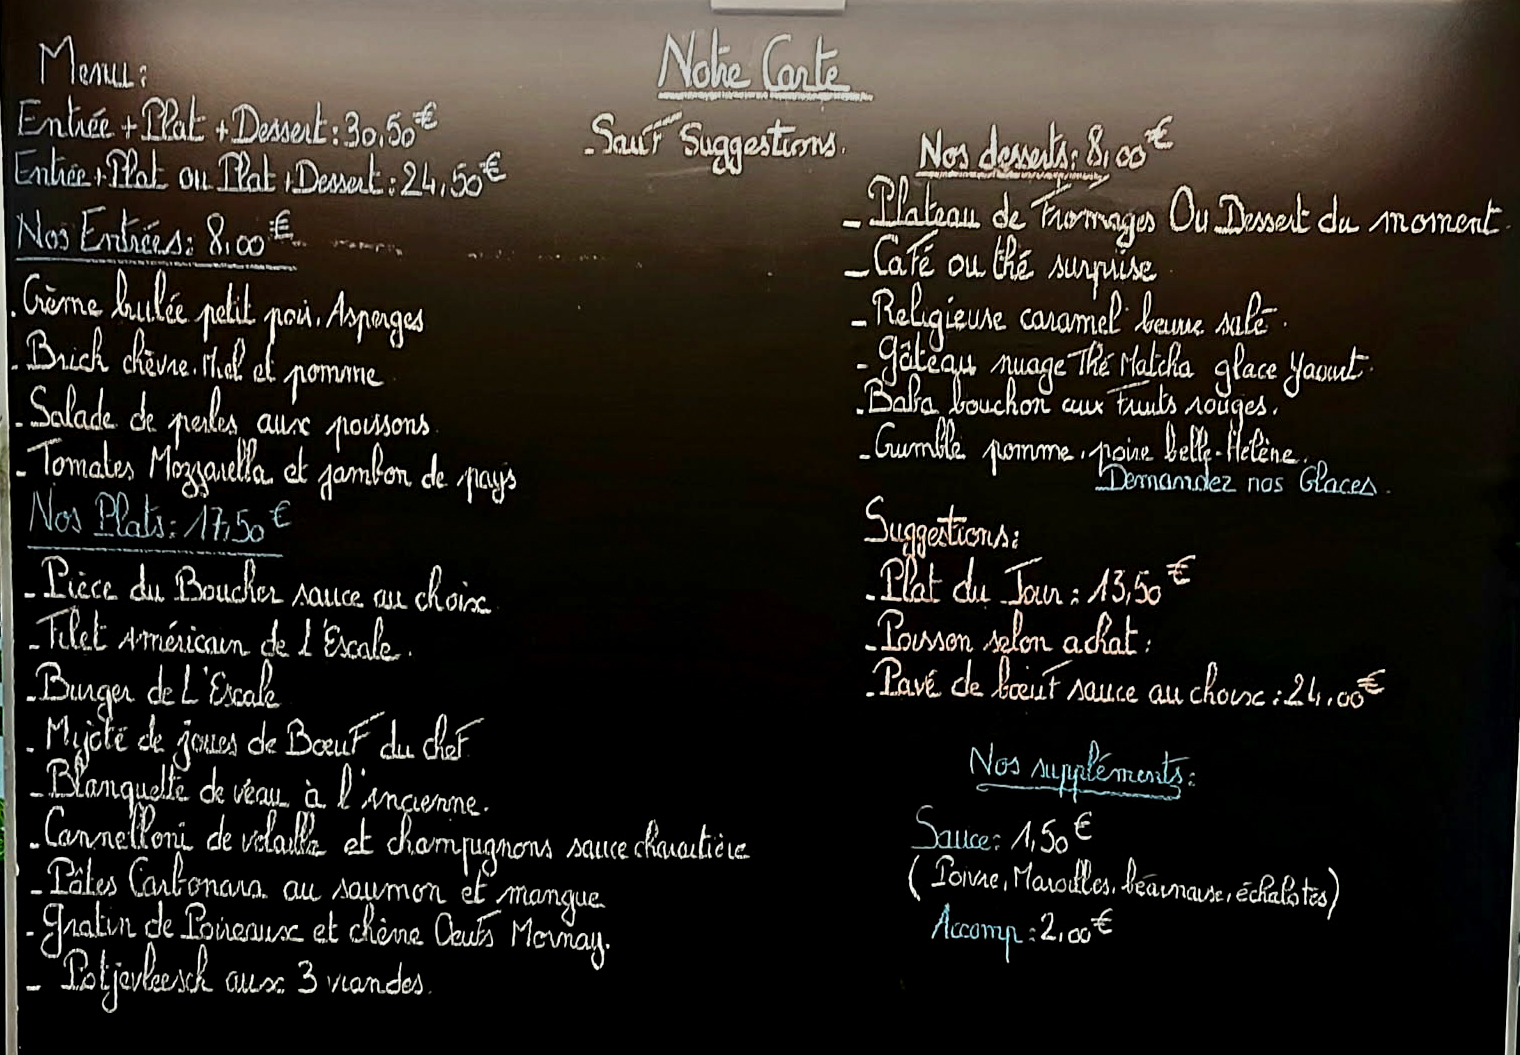 Notre Carte
Menu:
Entrée + Plat + Dessert: 30,50€
Entrée + Plat ou Plat + Dessert: 24,50€
- Sauf Suggestions.
Nos Entrées: 8,00€
- Crème brulée petit pois. Asperges
- Brick chèvre. Miel et pomme
- Salade de perles aux poissons
- Tomates Mozzarella et jambon de pays
Nos Plats: 17,50€
- Pièce du Boucher sauce au choix
- Filet Américain de l'Escale.
- Burger de L'Escale
- Mijoté de joues de Boeuf du chef
- Blanquette de veau à l'incienne.
- Cannelloni de volaille et champignons sauce charcutière
- Pâtes Carbonara au saumon et mangue
- Gratin de Poireaux et chèvre Oeufs Mornay.
- Potjevleesch aux 3 viandes.
Nos desserts: 8,00€
- Plateau de Fromages Ou Dessert du moment.
- Café ou thé surprise
- Religieuse caramel beurre salé.
- Gâteau nuage Thé Matcha glace Yaourt.
- Baba bouchon aux Fruits rouges.
- Crumble pomme, poire belle-Hélène.
Demandez nos Glaces.
Suggestions:
- Plat du Jour: 13,50€
- Poisson selon achat:
- Pavé de boeuf sauce au choix: 24,00€
Nos suppléments:
Sauce: 1,50€
(Poivre, Maroilles, béarnaise, échalotes)
Accomp: 2,00€